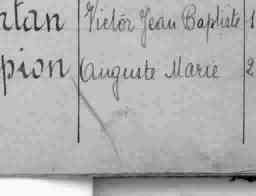 ntan Victor Jean Baptiste 1
pion Auguste Marie 2